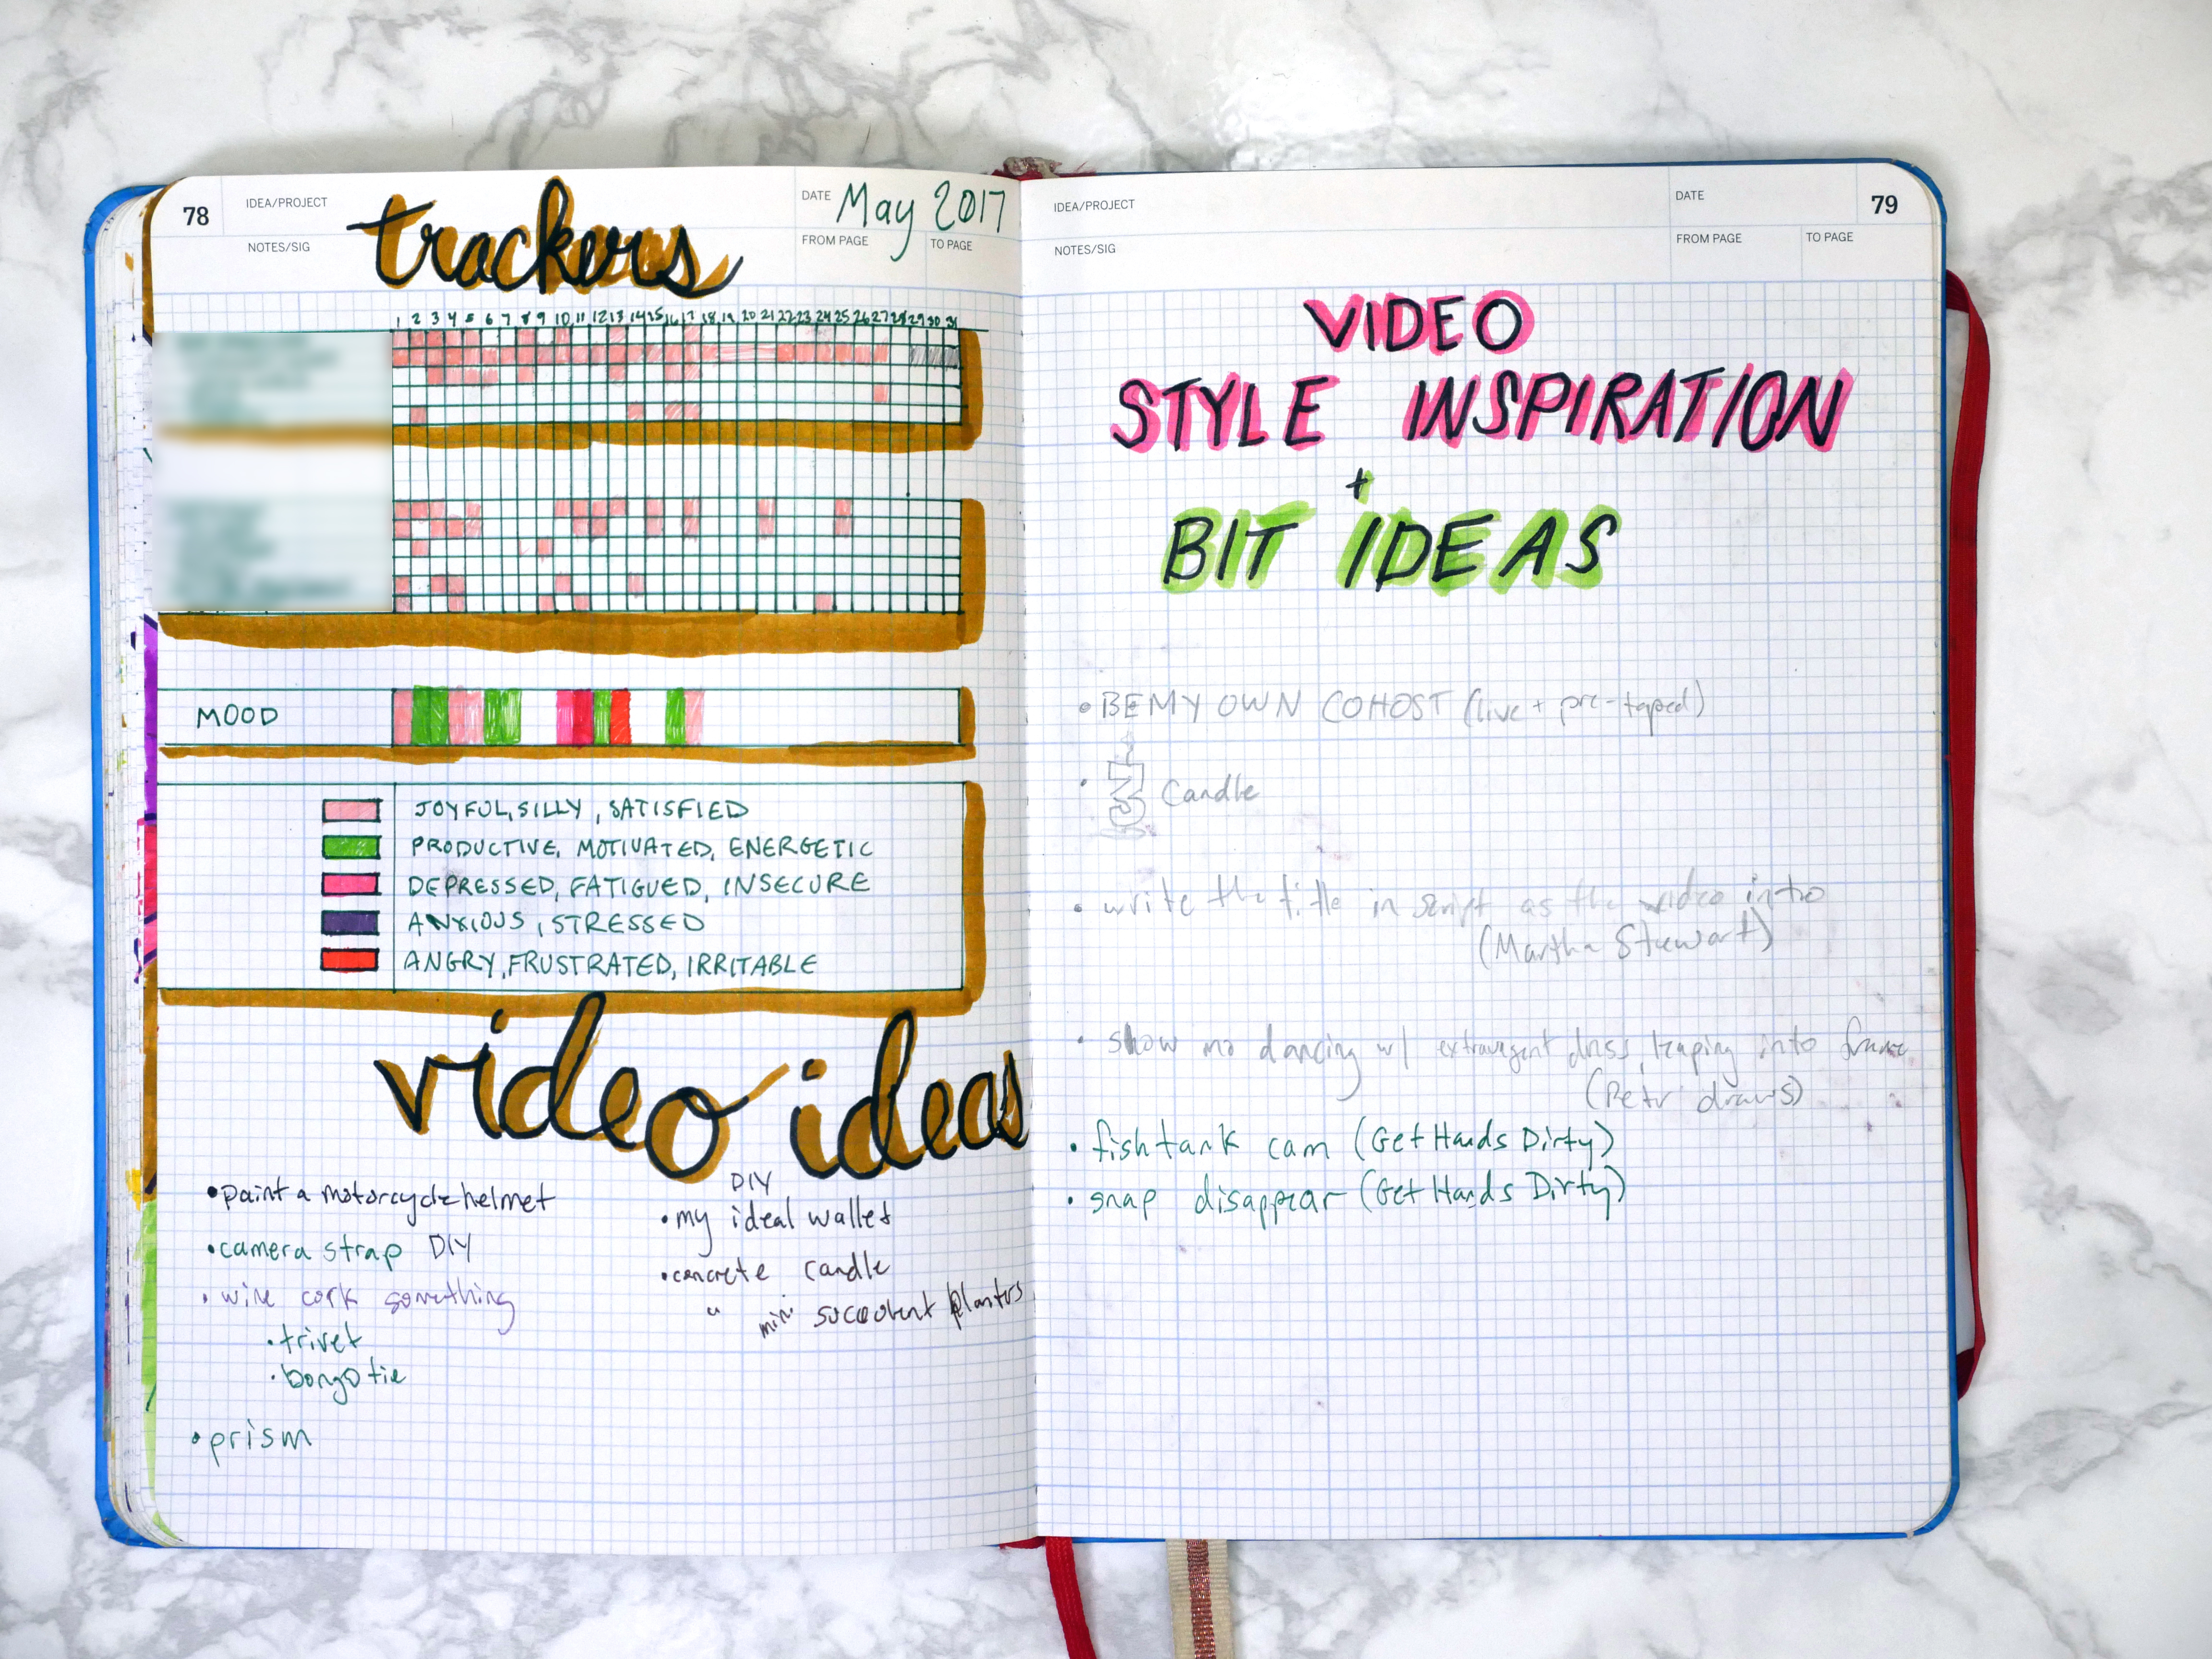 78
IDEA/PROJECT
NOTES/SIG
trackers
DATE May 2017
FROM PAGE
TO PAGE
1 2 3 4 5 6 7 8 9 10 11 12 13 14 15 16 17 18 19 20 21 22 23 24 25 26 27 28 29 30 31
MOOD
JOYFUL, SILLY, SATISFIED
PRODUCTIVE, MOTIVATED, ENERGETIC
DEPRESSED, FATIGUED, INSECURE
ANXIOUS, STRESSED
ANGRY, FRUSTRATED, IRRITABLE
video ideas
• paint a motorcycle helmet
• camera strap DIY
• wine cork something
• trivet
• prism
DIY
• my ideal wallet
• concrete candle
" mini succulent planters
IDEA/PROJECT
NOTES/SIG
DATE
79
FROM PAGE
TO PAGE
VIDEO
STYLE INSPIRATION
+
BIT IDEAS
• BE MY OWN COHOST (live + pre-taped)
• Candle
• write the title in script as the video intro
(Martha Stewart)
• show me dancing w/ extravagent dress, leaping into frame
draws)
• fish tank cam (Get Hands Dirty)
• snap disappear (Get Hands Dirty)